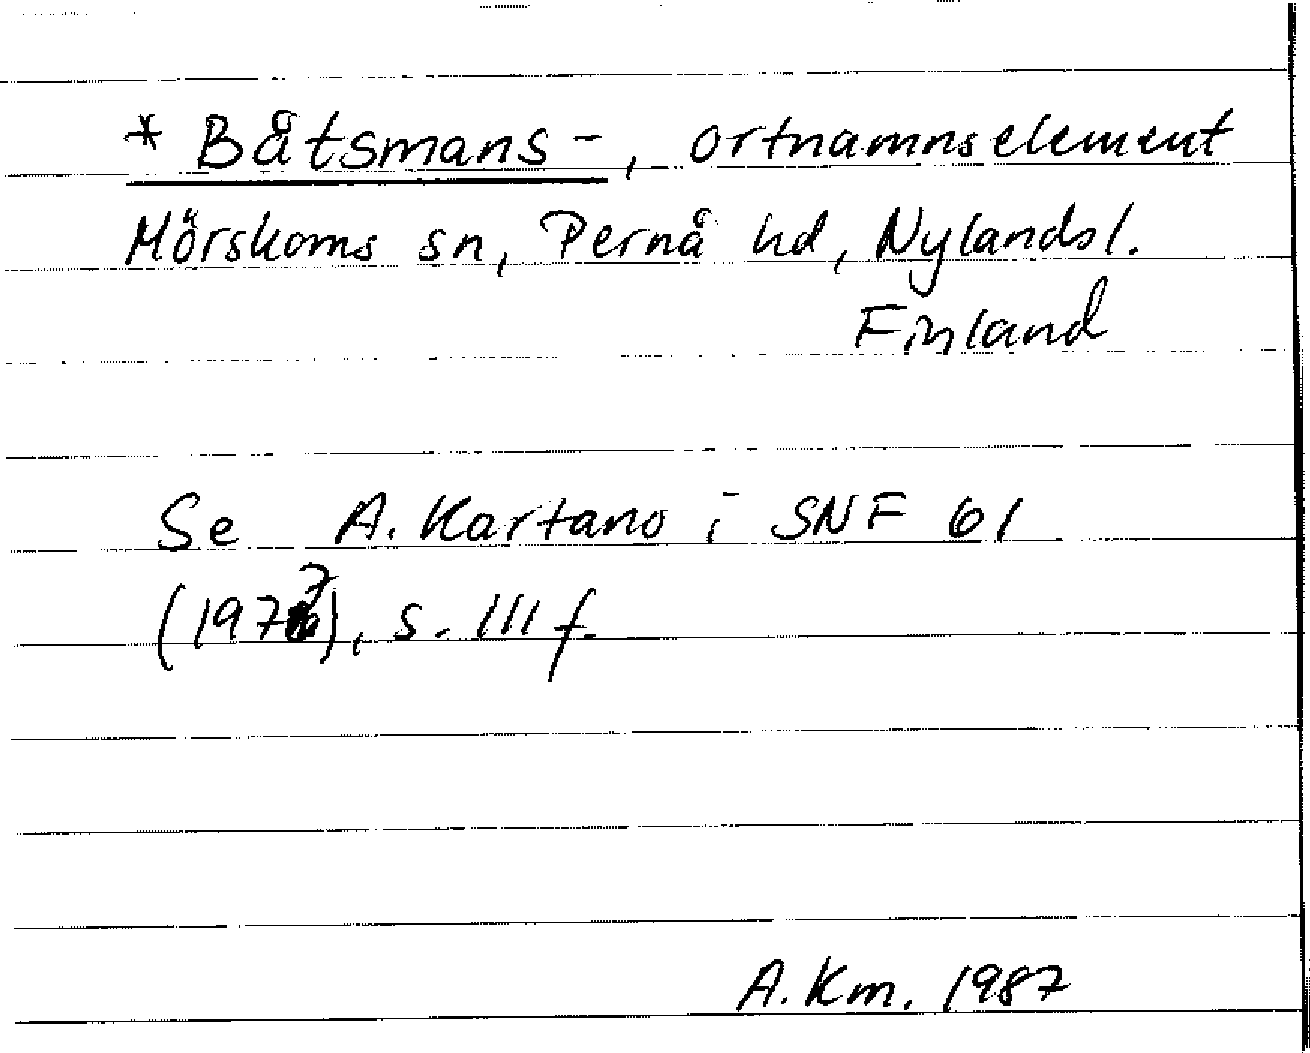 * Båtsmans-, ortnamnselement
Mörskoms sn, Pernå hd, Nylandsl.
Finland
Se A. Kartano i SNF 61
(1977), s. 111 f.
A. Km. 1987